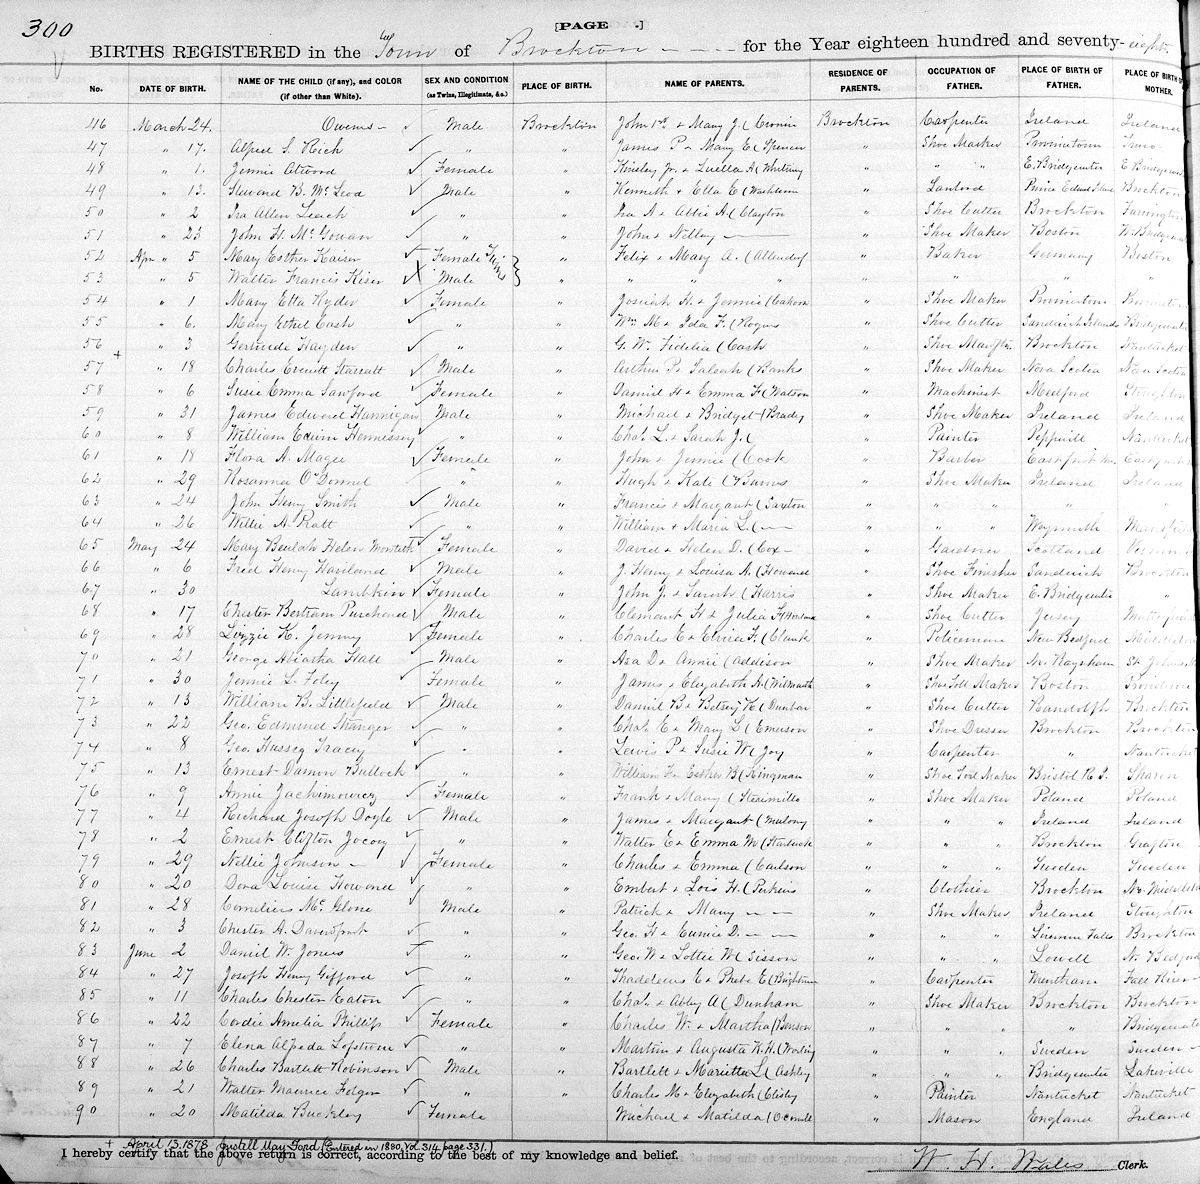 300
[PAGE .]
BIRTHS REGISTERED in the Town of Brockton for the Year eighteen hundred and seventy-eight
No. DATE OF BIRTH. NAME OF THE CHILD (if any), and COLOR (if other than White). SEX AND CONDITION (as Twins, Illegitimate, &c.) PLACE OF BIRTH. NAME OF PARENTS. RESIDENCE OF PARENTS. OCCUPATION OF FATHER. PLACE OF BIRTH OF FATHER. PLACE OF BIRTH OF MOTHER.
46 March 24. Owens ✓ Male Brockton John 1st & Mary J. (Cronin Brockton Carpenter Ireland Ireland
47 " 17. Alfred S. Rich ✓ " " James P & Mary E (Spencer " Shoe Maker Provincetown Truro
48 " 1. Jennie Atwood ✓ Female " Hinsley Jr. & Luella A ( " " " E. Bridgewater E Bridgewater
49 " 13. B. McLeod ✓ Male " Kenneth & Etta E (Washburn " Prince Edward Island Brockton
50 " 2 Ira Allen Leach ✓ " " Ira A & Abbie A (Clayton " Shoe Cutter Brockton Farmington
51 " 23 John H. McGowan ✓ " " John & Nelley — " Shoe Maker Boston W. Bridgewater
52 Apr " 5 Mary Esther Kaiser ✓ Female Twins " Felix & Mary A. ( " Baker Germany Boston
53 " 5 Walter Francis Kiser ✓ Male " " " " " " " "
54 " 1 Mary Etta Ryder ✓ Female " Josiah H. & Jennie ( " Shoe Maker Provincetown
55 " 6. Mary Ethel Cash ✓ " " Wm M & Ida F. (Rogers " Shoe Cutter Sandwich Islands Bridgewater
56 " 3 Gertrude Hayden ✓ " " G. W. Fidelia (Cash " Shoe Brockton Nantucket
57 + " 18 Charles Everett Starratt ✓ Male " Arthur P & (Banks " Shoe Maker Nova Scotia Nova Scotia
58 " 6 Susie Emma Sawford ✓ Female " Daniel H & Emma F (Watson " Machinist Medford Stoughton
59 " 31 James Edward Hannigan Male " Michael & Bridget (Brady " Shoe Maker Ireland Ireland
60 " 8 William Edwin Hennessey ✓ " " Chas. L. & Sarah J. ( " Painter Nantucket
61 " 18 Flora A. Magee ✓ Female " John & Jennie (Cook " Barber Eastport Me. Eastport
62 " 29 Rosanna O'Donnel " " Hugh & Kate (Burns " Shoe Maker Ireland Ireland
63 " 24 John Henry Smith ✓ Male " Francis & Margaret (Saxton " " " " "
64 " 26 Willie A. Ratt ✓ " " William & Maria L. (— " " " Weymouth Mansfield
65 May 24 Mary Beulah Helen Monteith Female " David & Helen D. (Cox " Gardner Scotland
66 " 6 Fred Henry Haviland ✓ Male " J. Henry & Louisa A. (Howard " Shoe Finisher Sandwich Brockton
67 " 30 Lambkin ✓ Female " John J. & Sarah (Harris " Shoe Maker E. Bridgewater "
68 " 17 Chester Bertram Purchard ✓ Male " Clement H & Julia F ( " Shoe Cutter Jersey
69 " 28 Lizzie K. Jenney ✓ Female " Charles E & Elvira F. (Clark " Policeman New Bedford
70 " 21 George Abiatha Hall ✓ Male " Asa D & Annie (Addison " Shoe Maker No. Raynham St Johns
71 " 30 Jennie L. Foley ✓ Female " James & Elizabeth A (Wilmarth " Shoe Tool Maker Boston Providence
72 " 13 William B. Littlefield ✓ Male " Daniel B & Betsey K (Dunbar " Shoe Cutter Randolph Brockton
73 " 22 Geo. Edmund Stranger ✓ " " Chas. E & Mary L (Emerson " Shoe Dresser Brockton Brockton
74 " 8 Geo. Hussey Tracey ✓ " " Lewis P & Susie W (Joy " Carpenter " Nantucket
75 " 13 Ernest Damon Bullock ✓ " " William F & Esther B (Kingman " Shoe Tool Maker Bristol R. I. Sharon
76 " 9 Annie Jachimowicz ✓ Female " Frank & Mary ( " Shoe Maker Poland Poland
77 " 4 Richard Joseph Doyle ✓ Male " James & Margaret (Malony " " " Ireland Ireland
78 " 2 Ernest Clifton Jocoy ✓ " " Walter E & Emma M (Starbuck " " " Brockton Grafton
79 " 29 Nellie Johnson ✓ Female " Charles & Emma (Carlson " " " Sweden Sweden
80 " 20 Dora Louise Howard ✓ " " Embert & Lois H. (Perkins " Clothier Brockton No. Middleboro
81 " 28 Cornelius McGlone Male " Patrick & Mary — — " Shoe Maker Ireland Stoughton
82 " 3 Chester A. Davenport ✓ " " Geo. H & Eunice D. — — " " " Livermore Falls Brockton
83 June 2 Daniel W. Jones ✓ " " Geo. W & Lottie W (Sisson " " " Lowell N. Bedford
84 " 27 Joseph Henry Gifford ✓ " " Thaddeus E & Phebe E (Brightman " Carpenter Wrentham Fall River
85 " 11 Charles Chester Eaton ✓ " " Chas. & Abby A (Dunham " Shoe Maker Brockton Brockton
86 " 22 Cordie Amelia Phillips ✓ Female " Charles W. & Martha (Benson " " " " Bridgewater
87 " 7 Elena Alfreda Lofstrom ✓ " " Martin & Augusta W. H. ( " " " Sweden Sweden
88 " 26 Charles Bartlett Robinson ✓ Male " Bartlett & Marietta L (Ashley " " " Bridgewater Lakeville
89 " 21 Walter Maurice Folger ✓ " " Charles M & Elizabeth (Cisby " Painter Nantucket Nantucket
90 " 20 Matilda Buckley ✓ Female " & Matilda (Oconnell " Mason England Ireland
+ April 13, 1878 May Ford (Entered in 1880, Vol. 314, page 331.)
I hereby certify that the above return is correct, according to the best of my knowledge and belief.
W. H. Wales Clerk.